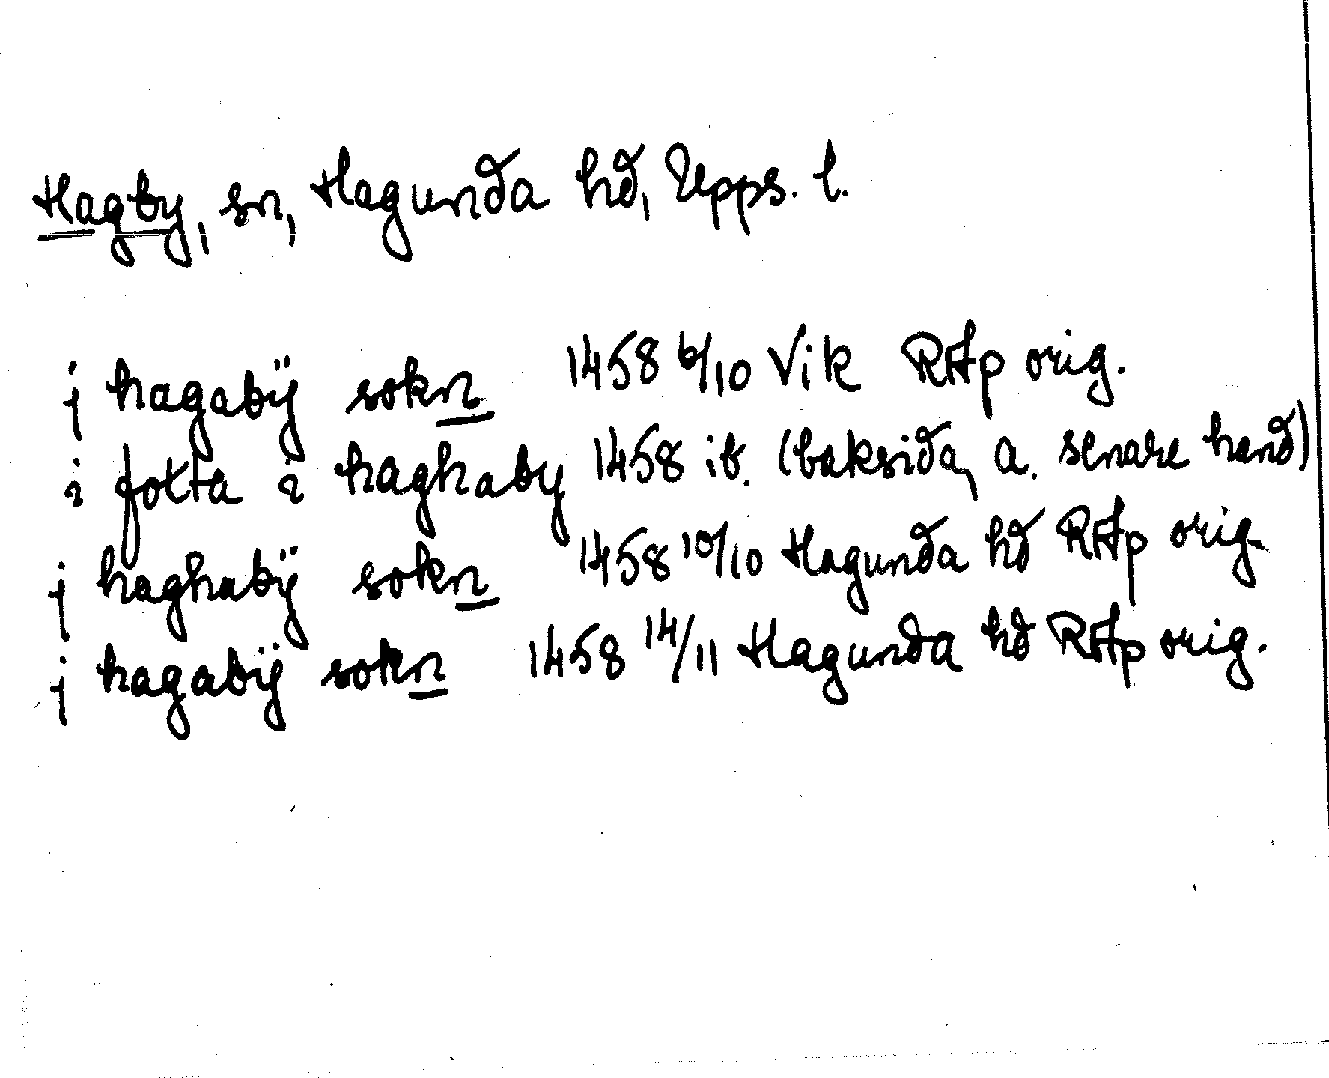 Hagby, sn, Hagunda hd, Upps. l.
j hagabÿ sokn 1458 6/10 Vik RAp orig.
i fotta i haghaby 1458 ib. (baksida, a. senare hand)
j haghabÿ sokn 1458 10/10 Hagunda hd RAp orig.
j hagabÿ sokn 1458 14/11 Hagunda hd RAp orig.